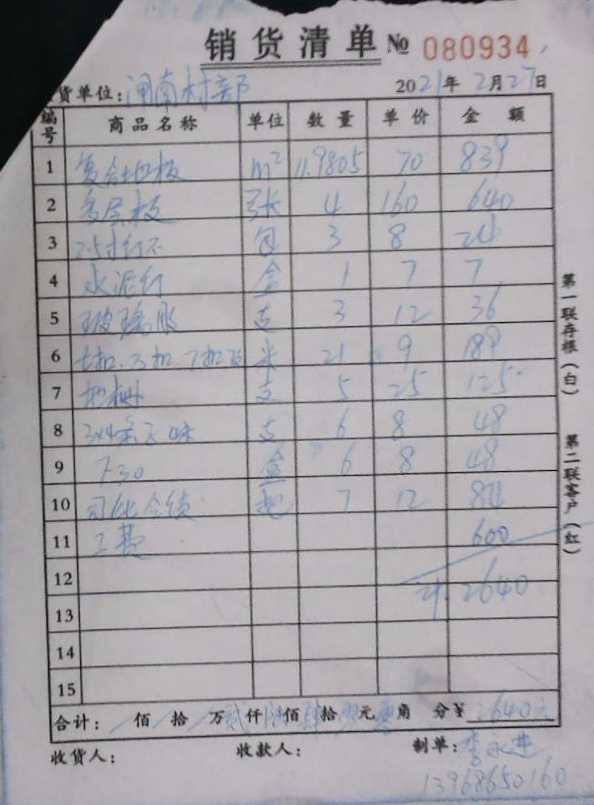 销货清单 № 080934
货单位：闽南村部 2021年2月27日
编号 商品名称 单位 数量 单价 金额
1 复合地板 m² 11.9805 70 839
2 多层板 张 4 160 640
3 包 3 8 24
4 水泥钉 盒 1 7 7
5 玻璃胶 支 3 12 36
6 米 21 9 189
7 支 5 25 125
8 支 6 8 48
9 T30 盒 6 8 48
10 7 12 84
11 工费 600
12 2640
13
14
15
合计： 佰 拾 万贰仟陆佰肆拾零元零角 分¥ 2640元
收货人： 收款人： 制单：李永进
13968650160
第一联存根（白）
第二联客户（红）